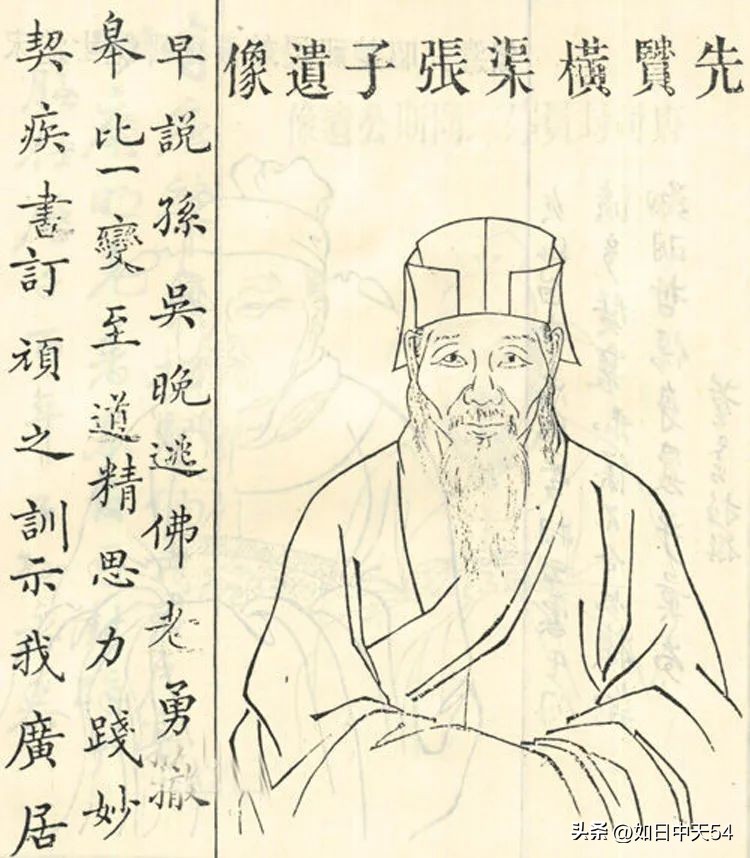 先賢橫渠張子遺像
早説孫吳晚逃佛老勇撤
皋比一變至道精思力踐妙
契疾書訂頑之訓示我廣居
头条 @如日中天54